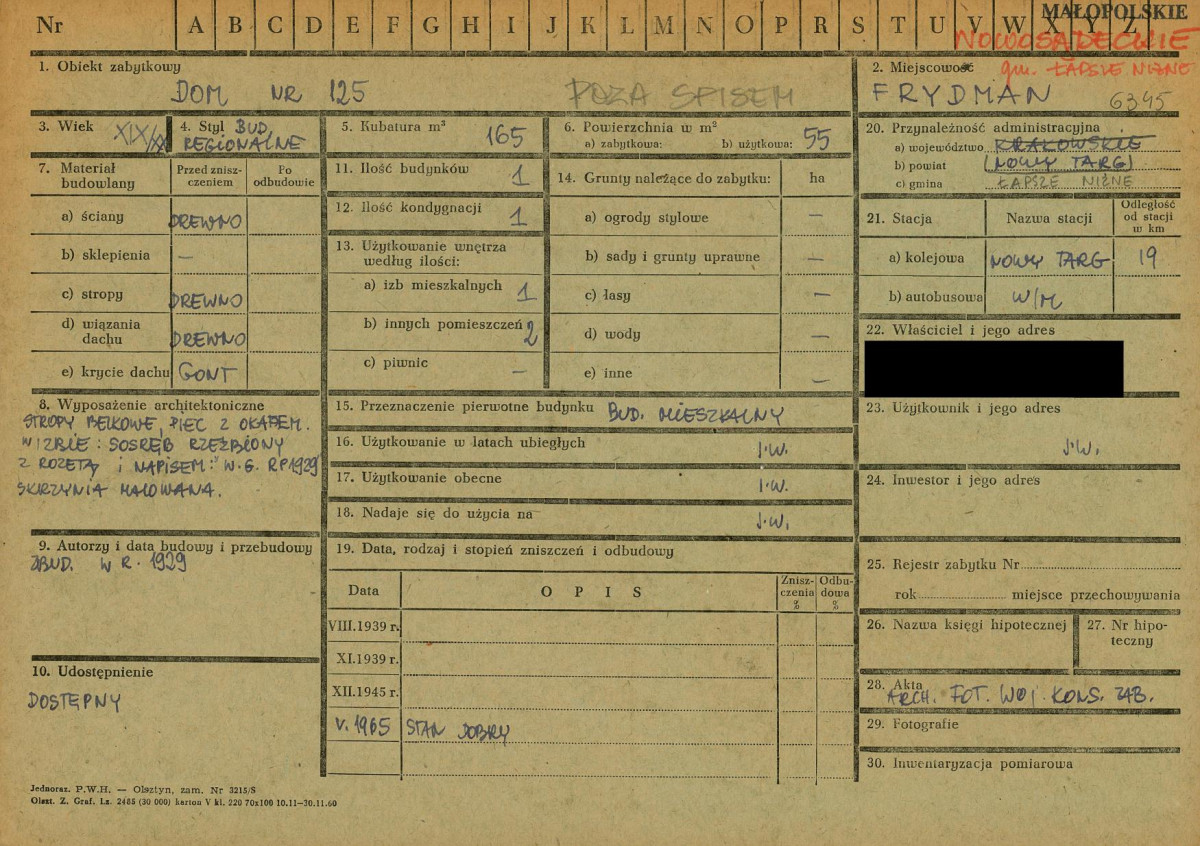 Nr A B C D E F G H I J K L M N O P R S T U V W X Y Z
MAŁOPOLSKIE
NOWOSĄDECKIE
gm. ŁAPSZE NIŻNE
1. Obiekt zabytkowy
DOM NR 125 POZA SPISEM
2. Miejscowość
FRYDMAN 6345
3. Wiek XIX/XX
4. Styl BUD. REGIONALNE
5. Kubatura m³ 165
6. Powierzchnia w m²
a) zabytkowa: b) użytkowa: 55
7. Materiał budowlany
Przed zniszczeniem
Po odbudowie
a) ściany DREWNO
b) sklepienia –
c) stropy DREWNO
d) wiązania dachu DREWNO
e) krycie dachu GONT
8. Wyposażenie architektoniczne
STROPY BELKOWE, PIEC Z OKAPEM.
W IZBIE: SOSRĘB RZEŹBIONY
Z ROZETĄ I NAPISEM: "W.G. RP1929
SKRZYNIA MALOWANA.
9. Autorzy i data budowy i przebudowy
ZBUD. W R. 1929
10. Udostępnienie
DOSTĘPNY
11. Ilość budynków 1
12. Ilość kondygnacji 1
13. Użytkowanie wnętrza według ilości:
a) izb mieszkalnych 1
b) innych pomieszczeń 2
c) piwnic –
14. Grunty należące do zabytku: ha
a) ogrody stylowe –
b) sady i grunty uprawne –
c) łasy –
d) wody –
e) inne –
15. Przeznaczenie pierwotne budynku BUD. MIESZKALNY
16. Użytkowanie w latach ubiegłych J.W.
17. Użytkowanie obecne J.W.
18. Nadaje się do użycia na J.W.
19. Data, rodzaj i stopień zniszczeń i odbudowy
Data OPIS Zniszczenia % Odbudowa %
VIII.1939 r.
XI.1939 r.
XII.1945 r.
V. 1965 STAN DOBRY
20. Przynależność administracyjna
a) województwo KRAKOWSKIE
b) powiat (NOWY TARG)
c) gmina ŁAPSZE NIŻNE
21. Stacja Nazwa stacji Odległość od stacji w km
a) kolejowa NOWY TARG 19
b) autobusowa W/M
22. Właściciel i jego adres
23. Użytkownik i jego adres
J.W.
24. Inwestor i jego adres
25. Rejestr zabytku Nr
rok miejsce przechowywania
26. Nazwa księgi hipotecznej
27. Nr hipoteczny
28. Akta
ARCH. FOT. WOJ. KONS. ZAB.
29. Fotografie
30. Inwentaryzacja pomiarowa
Jednoraz. P.W.H. — Olsztyn, zam. Nr 3215/S
Olszt. Z. Graf. Lz. 2485 (30 000) karton V kl. 220 70x100 10.11—30.11.60